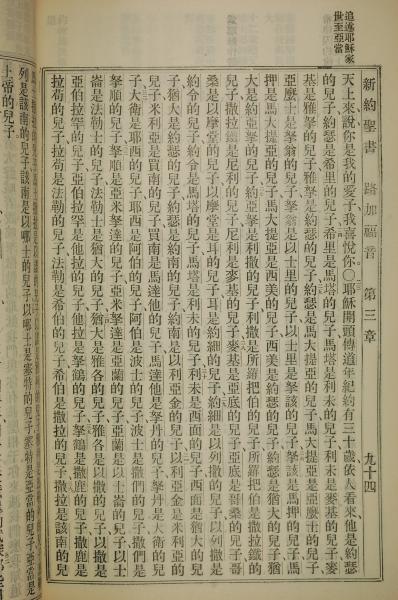 追述耶穌家
世至亞當
新約聖書 路加福音 第三章 九十四
天上來說、你是我的愛子、我喜悅你、〇耶穌開頭傳道年紀約有三十歲、依人看來、他是約瑟
的兒子、約瑟是希里的兒子、希里是馬塔的兒子、馬塔是利未的兒子、利未是麥基的兒子、麥
基是雅拏的兒子、雅拏是約瑟的兒子、約瑟是馬大提亞的兒子、馬大提亞是亞麼士的兒子、
亞麼士是拏翁的兒子、拏翁是以士里的兒子、以士里是拏該的兒子、拏該是馬押的兒子、馬
押是馬大提亞的兒子、馬大提亞是西美的兒子、西美是約瑟的兒子、約瑟是猶大的兒子、猶
大是約亞拏的兒子、約亞拏是利撒的兒子、利撒是所羅把伯的兒子、所羅把伯是撒拉鐵的
兒子、撒拉鐵是尼利的兒子、尼利是麥基的兒子、麥基是亞底的兒子、亞底是哥桑的兒子、哥
桑是以摩堂的兒子、以摩堂是耳的兒子、耳是約細的兒子、約細是以列撒的兒子、以列撒是
約令的兒子、約令是馬塔的兒子、馬塔是利未的兒子、利未是西面的兒子、西面是猶大的兒
子、猶大是約瑟的兒子、約瑟是約南的兒子、約南是以利亞金的兒子、以利亞金是米利亞的
兒子、米利亞是買南的兒子、買南是馬達他的兒子、馬達他是拏丹的兒子、拏丹是大衛的兒
子、大衛是耶西的兒子、耶西是阿伯的兒子、阿伯是波士的兒子、波士是撒們的兒子、撒們是
拏順的兒子、拏順是亞米拏達的兒子、亞米拏達是亞蘭的兒子、亞蘭是以士崙的兒子、以士
崙是法勒士的兒子、法勒士是猶大的兒子、猶大是雅各的兒子、雅各是以撒的兒子、以撒是
亞伯拉罕的兒子、亞伯拉罕是他拉的兒子、他拉是拏鶴的兒子、拏鶴是撒鹿的兒子、撒鹿是
拉苟的兒子、拉苟是法勒的兒子、法勒是希伯的兒子、希伯是撒拉的兒子、撒拉是該南的兒
列是該南的兒子、該南是以挪士的兒子、以挪士是塞特的兒子、塞特是亞當的兒子、亞當是
上帝的兒子